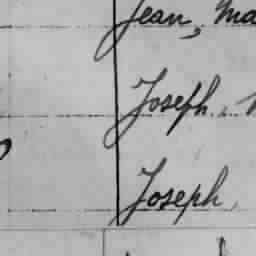 Jean, Ma
Joseph
Joseph,